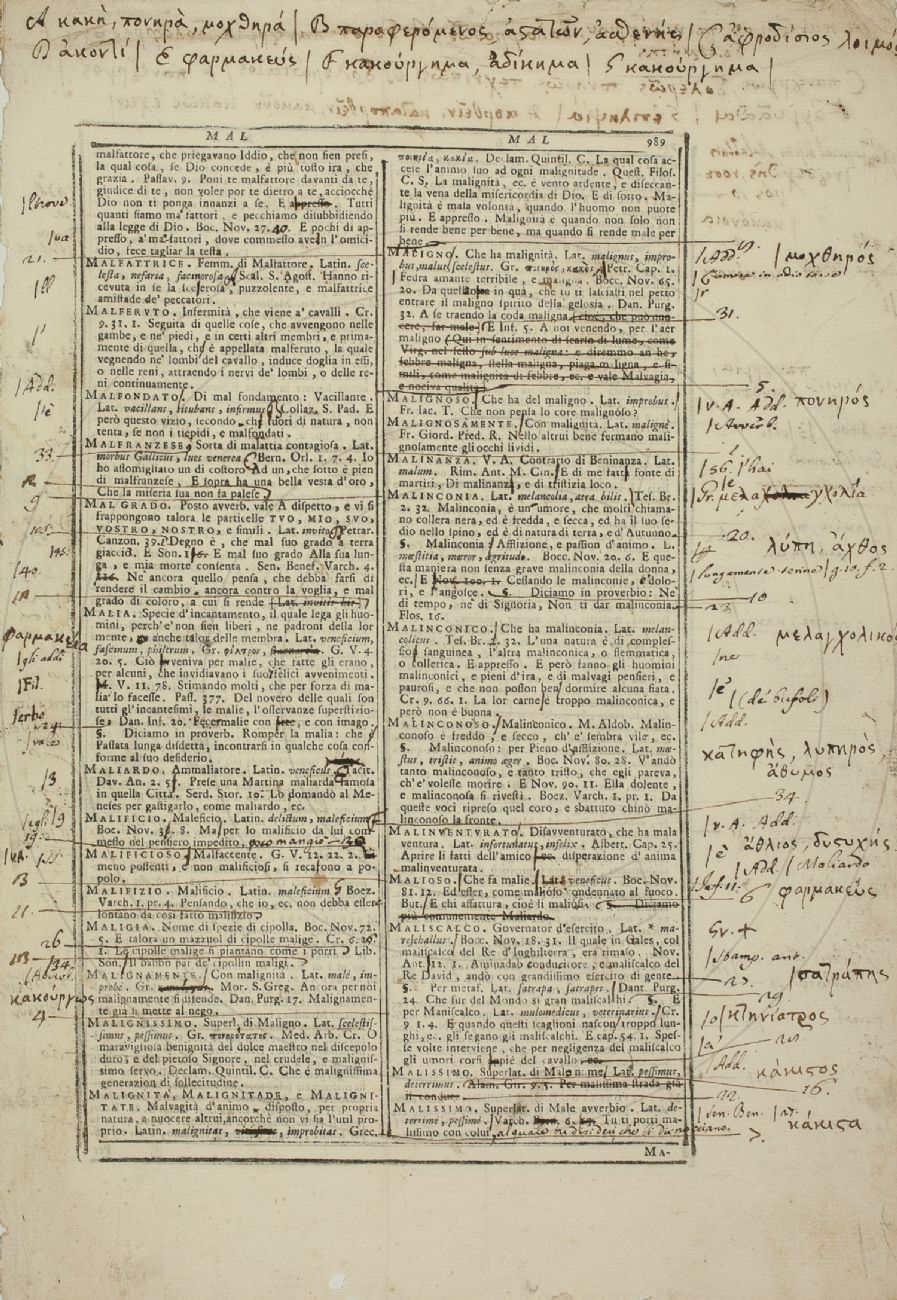 A κακὴ, πονηρὰ, μοχθηρά | B παραφερόμενος ἀσθενής | C ἀφροδίσιος λοιμός
D ἀκοντί | E φαρμακεύς | F κακούργημα, ἀδίκημα | G κακούργημα |
MAL
malfattore, che priegavano Iddio, che non sien presi,
la qual cosa, se Dio concede, è più tosto ira, che
grazia. Passav. 9. Poni te malfattore davanti da te,
giudice di te, non voler por te dietro a te, acciocchè
Dio non ti ponga innanzi a se. E appresso. Tutti
quanti siamo malfattori, e pecchiamo disubbidiendo
alla legge di Dio. Boc. Nov. 27. 40. E pochi di ap-
presso, a' malfattori, dove commesso aveàn l'omici-
dio, fece tagliar la testa.
MALFATTRICE. Femm. di Malfattore. Latin. sce-
lesta, nefaria, facinorosa. Scal. S. Agost. Hanno ri-
cevuta in se la scelerosa, puzzolente, e malfattrice
amistade de' peccatori.
MALFERVTO. Infermità, che viene a' cavalli. Cr.
9. 31. 1. Seguita di quelle cose, che avvengono nelle
gambe, e ne' piedi, e in certi altri membri, e prima-
mente di quella, che è appellata malferuto, la quale
vegnendo ne' lombi del cavallo, induce doglia in essi,
o nelle reni, attraendo i nervi de' lombi, o delle re-
ni continuamente.
MALFONDATO. Di mal fondamento: Vacillante.
Lat. vacillans, titubans, infirmus. Collaz. S. Pad. E
però questo vizio, secondo, che fuori di natura, non
tenta, se non i tiepidi, e malfondati.
MALFRANZESE. Sorta di malattia contagiosa. Lat.
morbus Gallicus, lues venerea. Bern. Orl. 1. 7. 4. Io
ho assomigliato un di costoro Ad un, che sotto è pien
di malfranzese, E sopra ha una bella vesta d'oro,
Che la miseria sua non fa palese.
MAL GRADO. Posto avverb. vale A dispetto, e vi si
frappongono talora le particelle TVO, MIO, SVO,
VOSTRO, NOSTRO, e simili. Lat. invito. Petrar.
Canzon. 39. Degno è, che mal suo grado a terra
giaccia. E Son. E mal suo grado Alla sua lun-
ga, e mia morte consenta. Sen. Benef. Varch. 4.
Ne ancora quello pensa, che debba farsi di
rendere il cambio ancora contro la voglia, e mal
grado di coloro, a cui si rende. Lat. invitis his.
MALIA. Specie d'incantamento, il quale lega gli huo-
mini, perch'e' non sien liberi, ne padroni della lor
mente, o anche talor delle membra. Lat. veneficium,
fascinum, philtrum. Gr. φίλτρον, G. V. 4.
20. 5. Ciò avveniva per malie, che fatte gli erano,
per alcuni, che invidiavano i suoi felici avvenimenti.
M. V. 11. 78. Stimando molti, che per forza di ma-
lia lo facesse. Pass. 377. Del novero delle quali son
tutti gl'incantesimi, le malie, l'osservanze superstizio-
se. Dan. Inf. 20. Fecer malie con erbe, e con imago.
§. Diciamo in proverb. Romper la malia: che è
Passata lunga disdetta, incontrarsi in qualche cosa con-
forme al suo desiderio.
MALIARDO. Ammaliatore. Latin. veneficus. Tacit.
Dav. An. 2. 51. Prese una Martina maliarda famosa
in quella Città. Serd. Stor. 10. Lo domandò al Me-
neses per gastigarlo, come maliardo, ec.
MALIFICIO. Maleficio. Latin. delictum, maleficium.
Boc. Nov. 36. 8. Ma per lo malificio da lui com-
messo nel pensiero impedito, poco mangiò.
MALIFICIOSO. Malfaccente. G. V. 12. 22. 2.
meno possenti, e non malificiosi, si recasono a po-
polo.
MALIFIZIO. Malificio. Latin. maleficium. Boez.
Varch. 1. pr. 4. Pensando, che io, ec. non debba esser
lontano da così fatto malifizio.
MALIGIA. Nome di spezie di cipolla. Boc. Nov. 72.
5. E talora un mazzuol di cipolle malige. Cr. 6. 29.
1. Le cipolle malige si piantano come i porri. Lib.
Son. Il babbo par de' cipollin maligi.
MALIGNAMENTE. Con malignità. Lat. malè, im-
probè. Gr. Mor. S. Greg. Ancora per noi
malignamente si difende. Dan. Purg. 17. Malignamen-
te già si mette al nego.
MALIGNISSIMO. Superl. di Maligno. Lat. scelestis-
simus, pessimus. Gr. πονηρότατος. Med. Arb. Cr. O
maravigliosa benignità del dolce maestro nel discepolo
duro; e del pietoso Signore, nel crudele, e malignis-
simo servo. Declam. Quintil. C. Che è malignissima
generazion di sollecitudine.
MALIGNITÀ, MALIGNITADE, e MALIGNI-
TATE. Malvagità d'animo disposto, per propria
natura, a nuocere altrui, ancorchè non vi sia l'util pro-
prio. Latin. malignitas, improbitas. Grec.
MAL 989
πονηρία, κακία. Declam. Quintil. C. La qual cosa ac-
cese l'animo suo ad ogni malignitade. Quest. Filos.
C. S. La malignità, ec. è vento ardente, e diseccan-
te la vena della misericordia di Dio. E di sotto. Ma-
lignità è mala volontà, quando l'huomo non puote
più. E appresso. Malignità è quando non solo non
si rende bene per bene, ma quando si rende male per
bene.
MALIGNO. Che ha malignità. Lat. malignus, impro-
bus, malus, scelestus. Gr. πονηρὸς, κακός. Petr. Cap. 1.
Fedra amante terribile, e maligna. Bocc. Nov. 65.
20. Da questora in quà, che tu ti lasciasti nel petto
entrare il maligno spirito della gelosia. Dan. Purg.
32. A se traendo la coda maligna (cioè, che può nuo-
cere, far male.) E Inf. 5. A noi venendo, per l'aer
maligno (Qui in sentimento di scarso di lume, come
Virg. nel sesto sub luce maligna: e diremmo anche,
febbre maligna, stella maligna, piaga maligna, e si-
mili, come malignità di febbre, ec. e vale Malvagia,
e nociva qualità.
MALIGNOSO. Che ha del maligno. Lat. improbus.
Fr. Iac. T. Che non pensa lo core malignoso?
MALIGNOSAMENTE. Con malignità. Lat. malignè.
Fr. Giord. Pred. R. Nello altrui bene fermano mali-
gnosamente gli occhi lividi.
MALINANZA. V. A. Contrario di Beninanza. Lat.
malum. Rim. Ant. M. Cin. E di me fatta fonte di
martiri, Di malinanza, e di tristizia loco.
MALINCONIA. Lat. melancolia, atra bilis. Tes. Br.
2. 32. Malinconia, è un'umore, che molti chiama-
no collera nera, ed è fredda, e secca, ed ha il suo se-
dio nello spino, ed è di natura di terra, e d'Autunno.
§. Malinconia: Afflizione, e passion d'animo. L.
mœstitia, mœror, ægritudo. Bocc. Nov. 20. 6. E que-
sta maniera non senza grave malinconia della donna,
ec. E Nov. 100. 1. Cessando le malinconie, e dolo-
ri, e l'angosce. §. Diciamo in proverbio: Ne'
di tempo, ne' di Signoria, Non ti dar malinconia.
Flos. 16.
MALINCONICO. Che ha malinconia. Lat. melan-
colicus. Tes. Br. 2. 32. L'una natura è di comples-
sion sanguinea, l'altra malinconica, o flemmatica,
o collerica. E appresso. E però fanno gli huomini
malinconici, e pieni d'ira, e di malvagi pensieri, e
paurosi, e che non posson ben dormire alcuna fiata.
Cr. 9. 66. 1. La lor carne è troppo malinconica, e
però non è buona.
MALINCONOSO. Malinconico. M. Aldob. Malin-
conoso è freddo, e secco, ch'e' sembra vile, ec.
§. Malinconoso: per Pieno d'afflizione. Lat. mœ-
stus, tristis, animo æger. Boc. Nov. 80. 28. V'andò
tanto malinconoso, e tanto tristo, che egli pareva,
ch'e' volesse morire. E Nov. 90. 11. Ella dolente,
e malinconosa si rivestì. Boez. Varch. 1. pr. 1. Da
queste voci ripreso quel coro, e sbattuto chinò ma-
linconoso la fronte.
MALINVENTVRATO. Disavventurato, che ha mala
ventura. Lat. infortunatus, infelix. Albert. Cap. 25.
Aprire li fatti dell'amico ec. disperazione d'anima
malinventurata.
MALIOSO. Che fa malie. Lat. veneficus. Boc. Nov.
81. 12. Ed esser, come malioso condennato al fuoco.
But. E chi affattura, cioè li maliosi. §. Diciamo
più comunemente Maliardo.
MALISCALCO. Governator d'esercito. Lat. * ma-
reschallus. Bocc. Nov. 18. 31. Il quale in Gales, col
maliscalco del Re d'Inghilterra, era rimaso. Nov.
Ant. 12. 1. Aminadab conduciore, e maliscalco del
Re David, andò con grandissimo esercito di gente.
§. Per metaf. Lat. satrapa, satrapes. Dant. Purg.
24. Che fur del Mondo sì gran maliscalchi. §. E
per Maniscalco. Lat. mulomedicus, veterinarius. Cr.
9. 1. 4. E quando questi scaglioni nascon troppo lun-
ghi, ec. gli segano gli maliscalchi. E cap. 54. 1. Spes-
se volte interviene, che per negligenza del maliscalco
gli umori corsi in piè del cavallo ec.
MALISSIMO. Superlat. di Malo nome. Lat. pessimus,
deterrimus. Alam. Gir. 9. 5. Per malissima strada già
il condur.
MALISSIMO. Superlat. di Male avverbio. Lat. de-
terrime, pessimè. Varch. Tu ti porti ma-
lissimo con colui,
MA-
21.
33.
9
40.
φαρμακεία
13
21.
26
κακούργως
4
Add. | μοχθηρός
31.
5.
v. A. Add. πονηρός
20. λύπη, ἄχθος
Add. μελαγχολικός
Add.
κατηφής, λυπηρός
ἄθυμος
34.
v. A. Add.
ἄθλιος, δυστυχής
Add. | Maliardo
6 φαρμακεύς
σατράπης
29
κτηνίατρος
Add. κάκιστος
16.
Sen. Ben. κάκιστα
7.